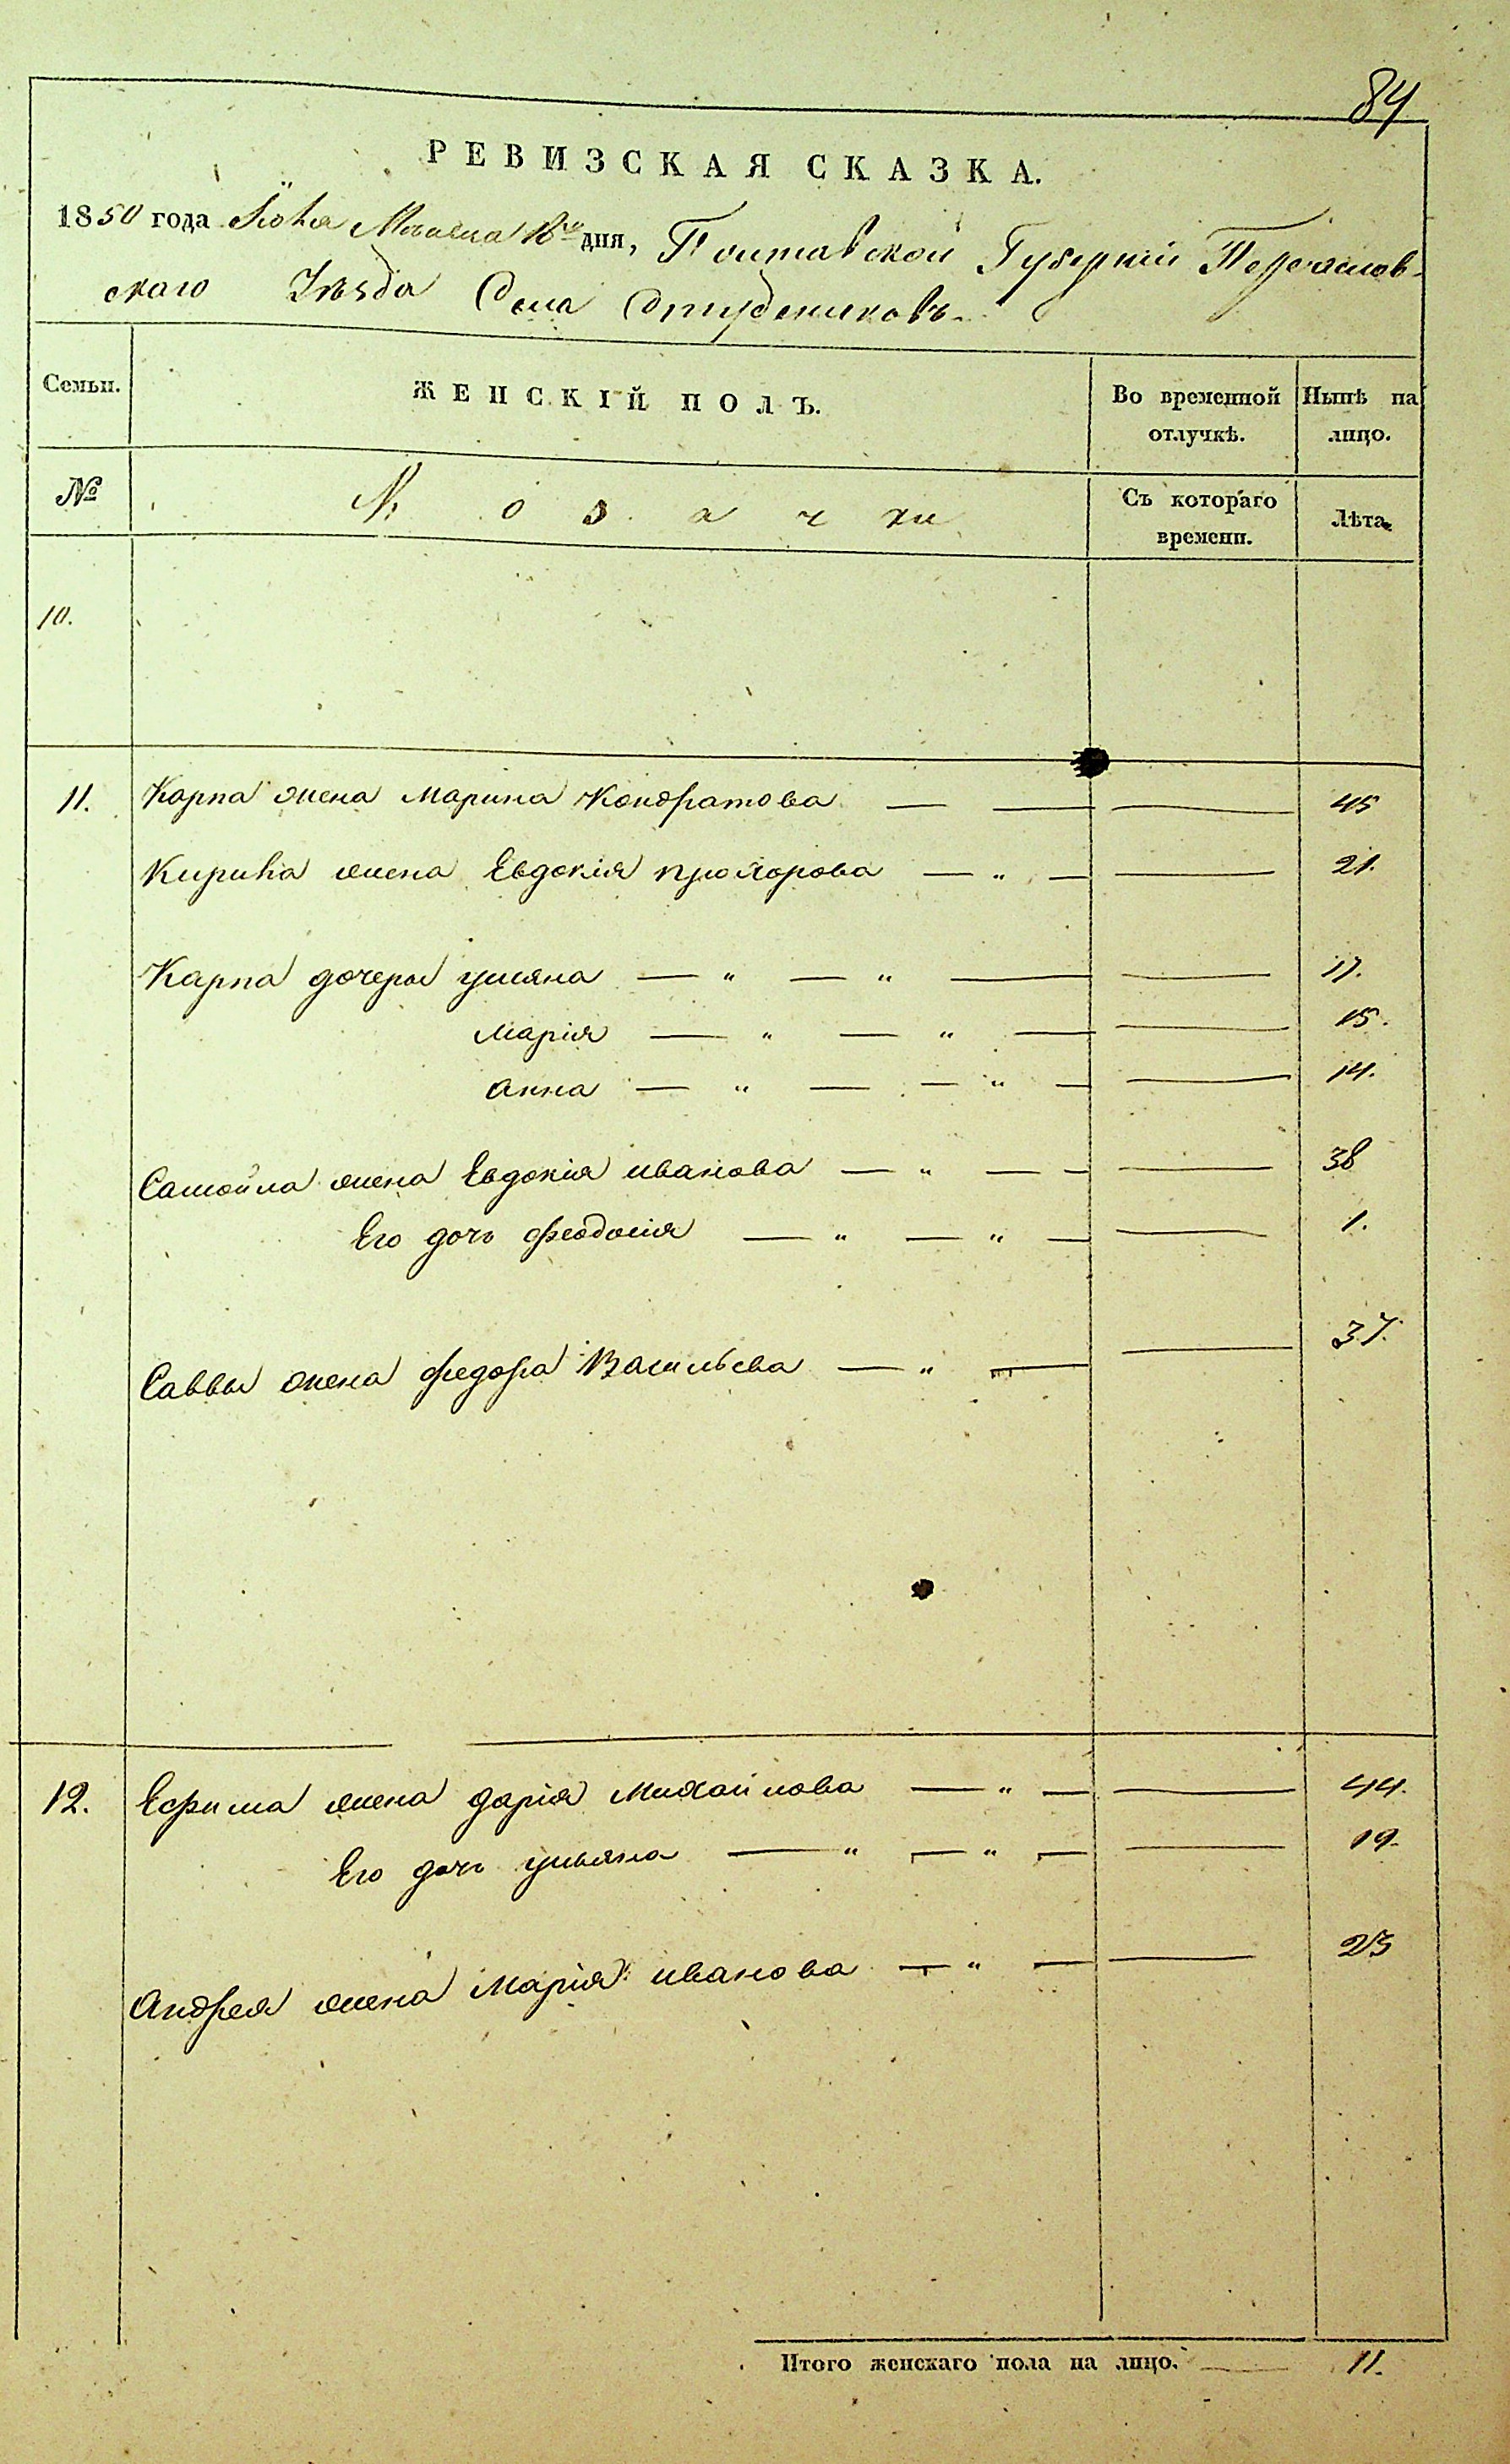 84
РЕВИЗСКАЯ СКАЗКА.
1850 года Мѣсяца 18го дня, Полтавской Губерніи Переяслав-
скаго Уѣзда Села Студениковъ
Семьи. ЖЕНСКІЙ ПОЛЪ. Во временной отлучкѣ. Нынѣ на лицо.
№ Козачки Съ котораго времени. Лѣта.
10.
11. Карпа жена Марина Кондратова — — — 45
Кирила жена Евдокія прохорова — „ — — 21.
Карпа дочеры улияна — „ — „ — — 17.
Марія — „ — „ — — 15.
анна — „ — — „ — — 14.
Самойла жена Евдокія иванова — „ — — — 38
Его дочь феодосія — „ — „ — — 1.
Саввы жена федора Васильева — „ — — 37.
12. Ефима жена дарія Михайлова — „ — — 44.
Его дочь ульяна — „ — „ — — 19.
андрея жена Марія иванова — „ — — 23
Итого женскаго пола на лицо. — 11.